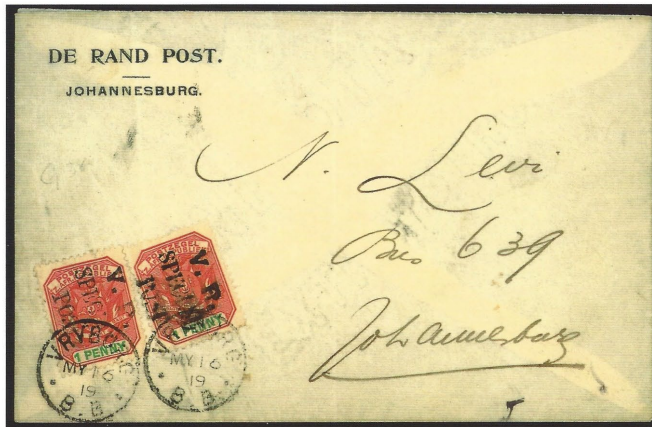 DE RAND POST.
JOHANNESBURG.
N. Levi
Bus 639
Johannesburg
POSTZEGEL
V. R.
SPECIAL
POST
1 PENNY
POSTZEGEL
V. R.
SPECIAL
POST
1 PENNY
VRYBURG
MY 16
19
B.B.
MY 16
19
B.B.